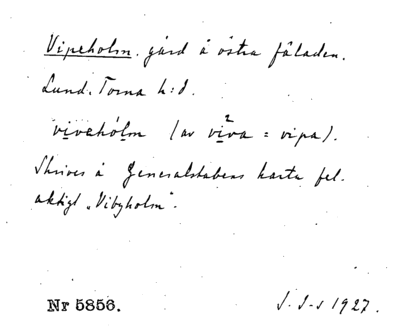 Vipeholm. gård å östra fäladen.
Lund. Torna h:d.
vivehólm (av vi²va = vipa).
Skrives å Generalstabens karta fel-
aktigt „Vibyholm".
Nr 5856.
J. I-s 1927.